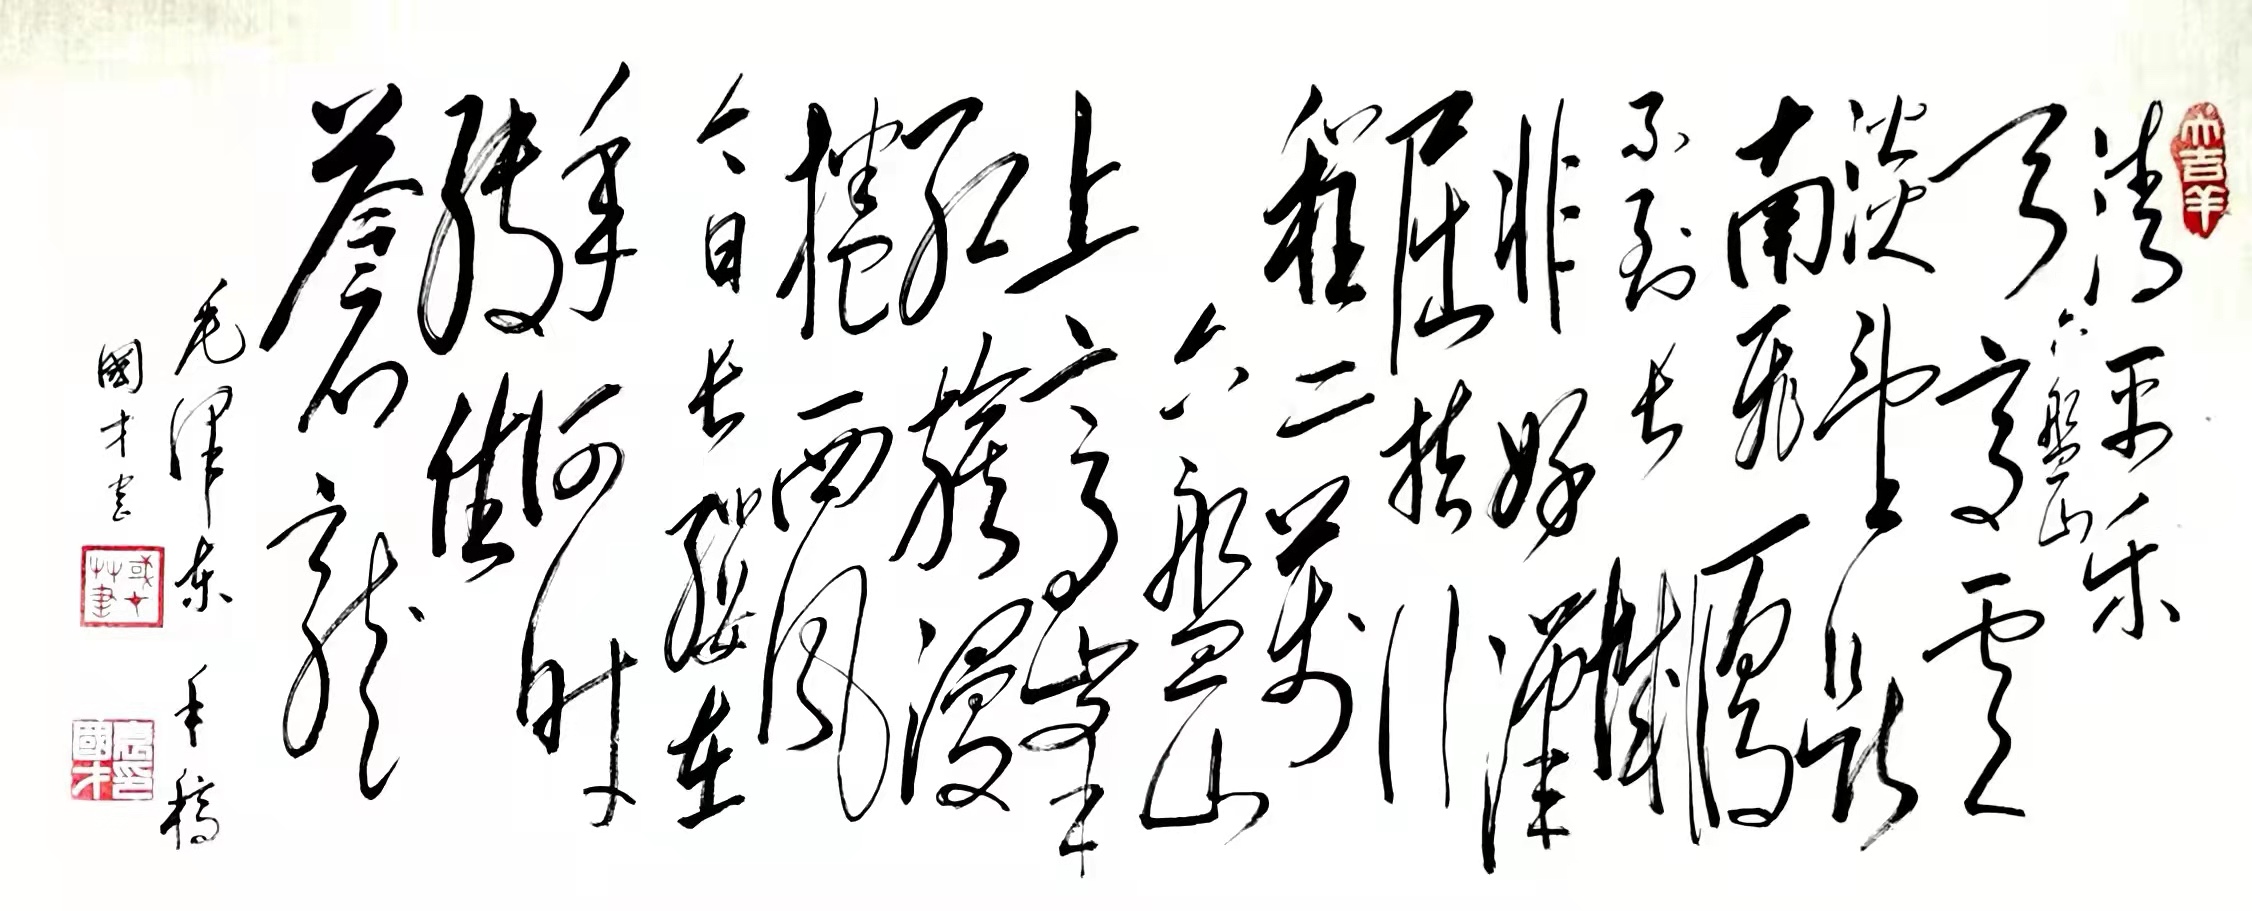 大吉羊
清平乐
六盘山
天高云
淡望断
南飞雁
不到长城
非好汉
屈指行
程二万
六盘山
上高峰
红旗漫
捲西风
今日长缨在
手何时
缚住
苍龙
毛泽东 手稿
國才书